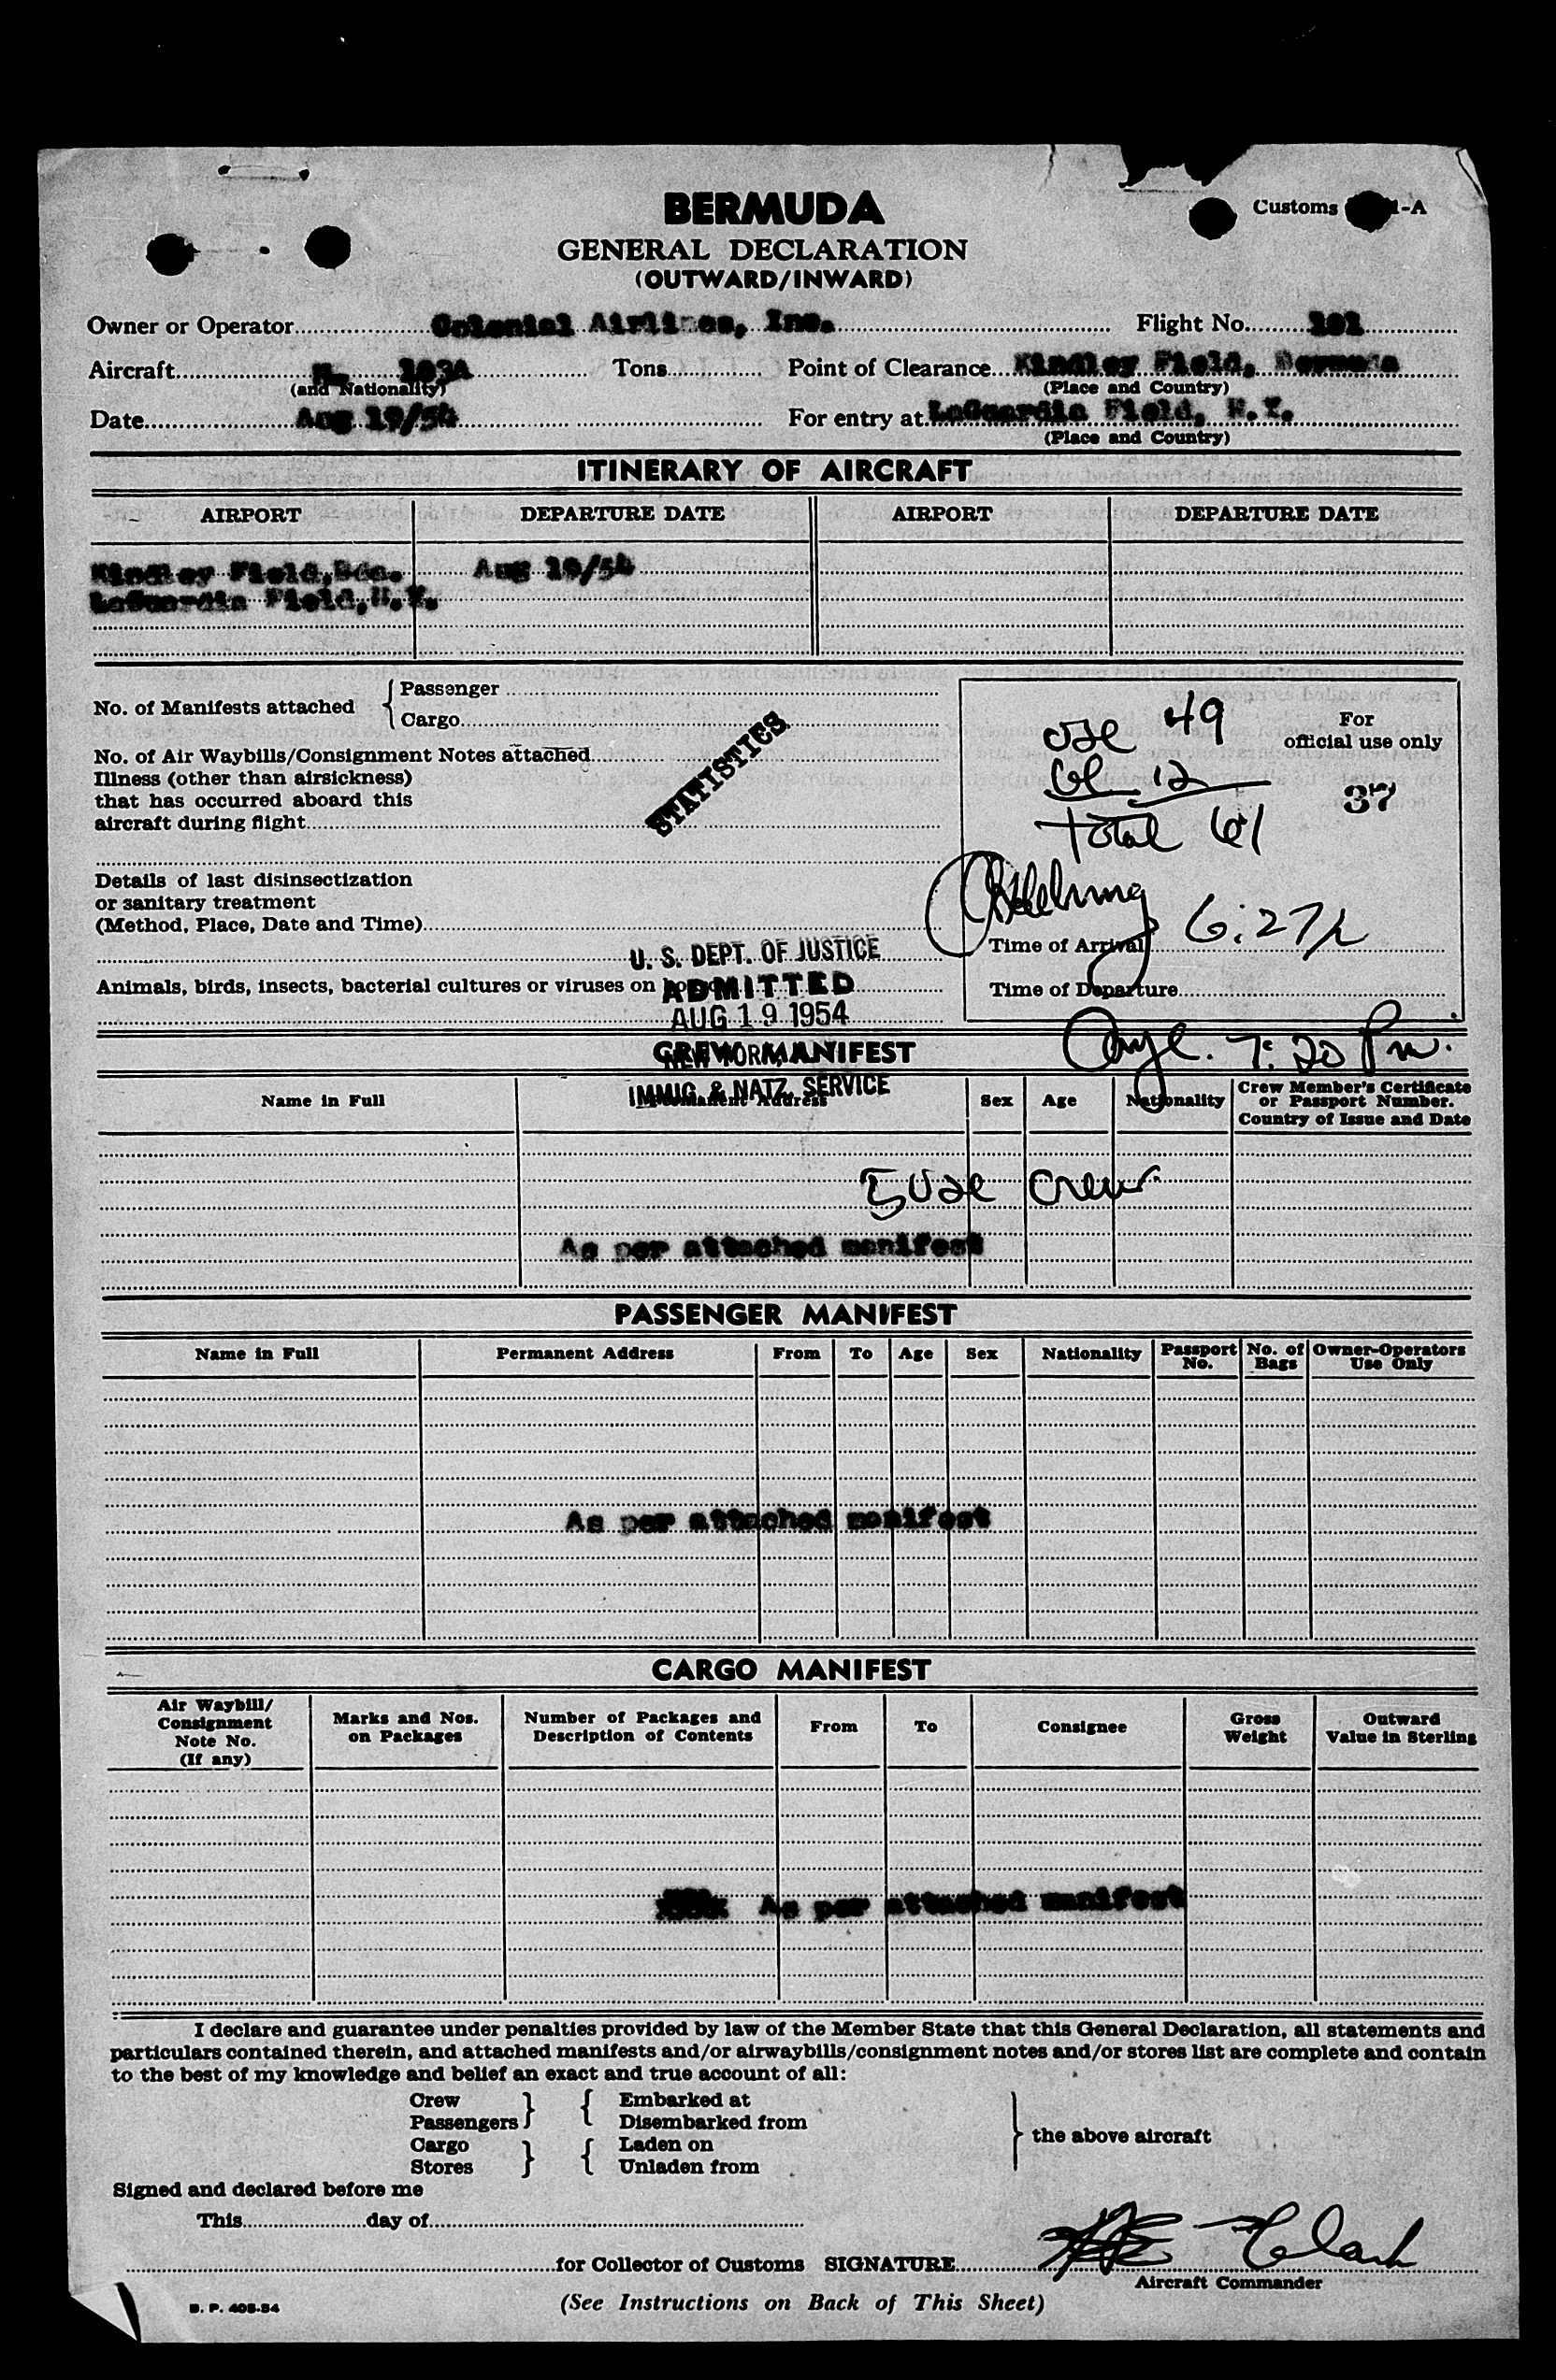 BERMUDA
Customs 1-A
GENERAL DECLARATION
(OUTWARD/INWARD)
Owner or Operator Colonial Airlines, Inc. Flight No.
Aircraft N- 103A Tons Point of Clearance Kindley Field, Bermuda
(and Nationality) (Place and Country)
Date Aug 19/54 For entry at LaGuardia Field, N.Y.
(Place and Country)
ITINERARY OF AIRCRAFT
AIRPORT DEPARTURE DATE AIRPORT DEPARTURE DATE
Kindley Field, Bda. Aug 19/54
LaGuardia Field, N.Y.
No. of Manifests attached { Passenger
Cargo
No. of Air Waybills/Consignment Notes attached
Illness (other than airsickness)
that has occurred aboard this
aircraft during flight
STATISTICS
Details of last disinsectization
or sanitary treatment
(Method, Place, Date and Time)
Animals, birds, insects, bacterial cultures or viruses on
U. S. DEPT. OF JUSTICE
ADMITTED
AUG 19 1954
NEW YORK
IMMIG. & NATZ. SERVICE
For
official use only
49
12
Total 61
37
Time of Arrival 6:27
Time of Departure
7:20 Pm.
CREW MANIFEST
Name in Full Permanent Address Sex Age Nationality Crew Member's Certificate
or Passport Number.
Country of Issue and Date
5 Crew
As per attached manifest
PASSENGER MANIFEST
Name in Full Permanent Address From To Age Sex Nationality Passport No. No. of Bags Owner-Operators Use Only
As per attached manifest
CARGO MANIFEST
Air Waybill/
Consignment
Note No.
(If any)
Marks and Nos.
on Packages
Number of Packages and
Description of Contents
From To Consignee
Gross
Weight
Outward
Value in Sterling
As per attached manifest
I declare and guarantee under penalties provided by law of the Member State that this General Declaration, all statements and
particulars contained therein, and attached manifests and/or airwaybills/consignment notes and/or stores list are complete and contain
to the best of my knowledge and belief an exact and true account of all:
Crew } { Embarked at
Passengers Disembarked from
Cargo } { Laden on
Stores Unladen from
} the above aircraft
Signed and declared before me
This day of
for Collector of Customs SIGNATURE Clark
Aircraft Commander
B. P. 408-54
(See Instructions on Back of This Sheet)